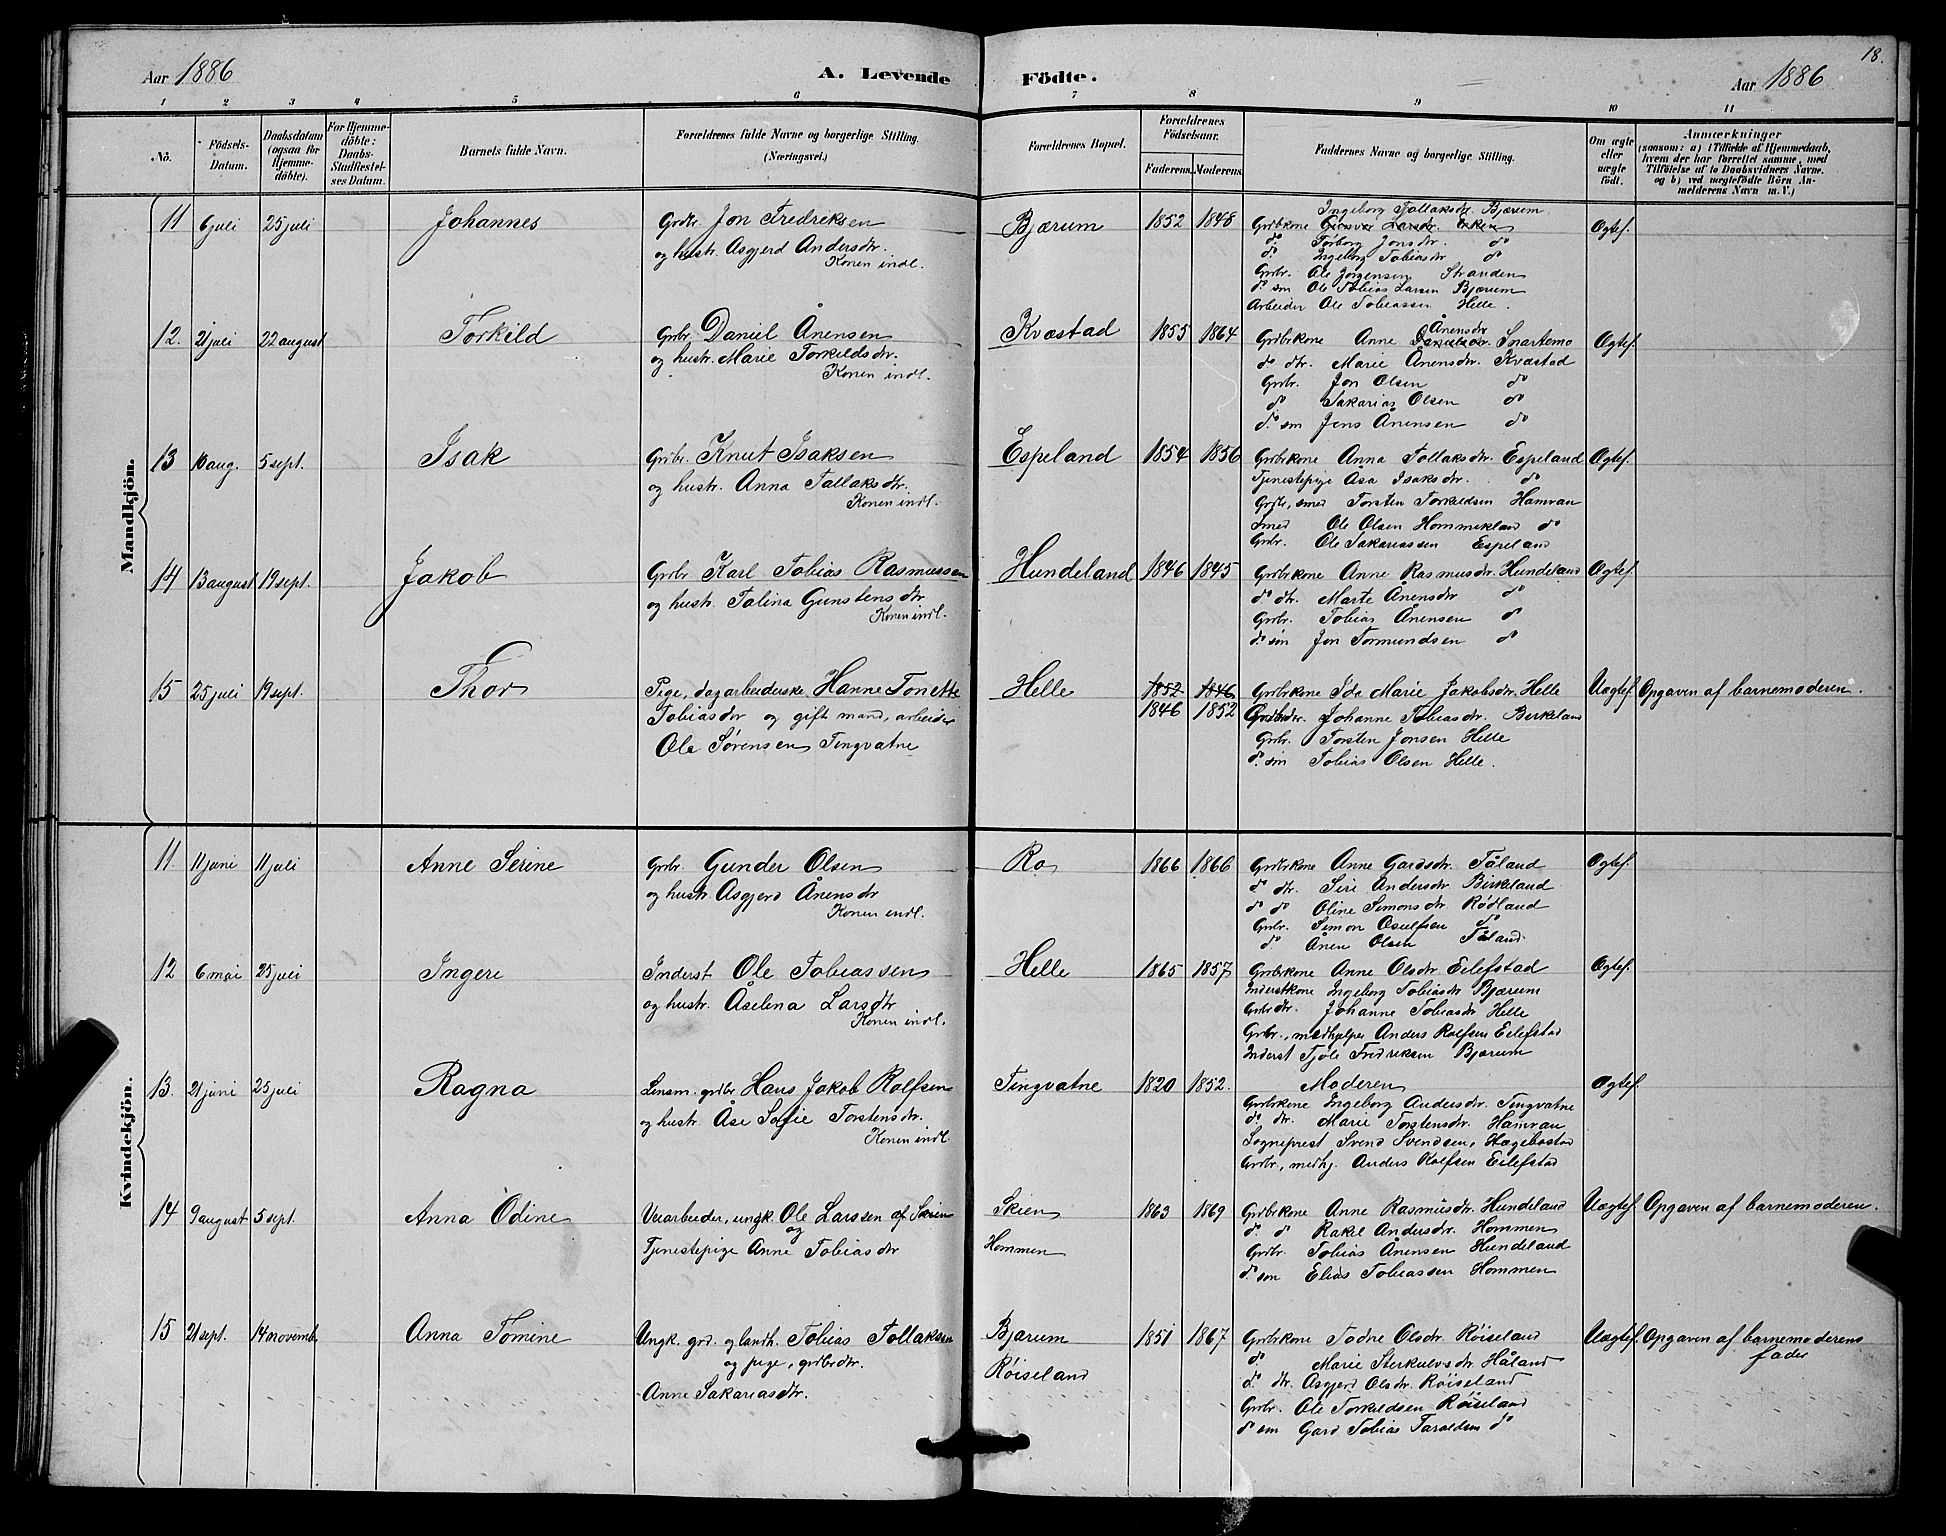 Aar 1886
A. Levende
Födte.
Aar 1886
18.
1 2 3 4 5 6 7 8 9 10 11
No.
Födsels-
Datum.
Daabsdatum
(ogsaa for
Hjemme-
döbte).
For Hjemme-
döbte:
Daabs-
Stadfæstel-
ses Datum.
Barnets fulde Navn.
Forældrenes fulde Navne og borgerlige Stilling.
(Næringsvei.)
Forældrenes Bopæl.
Forældrenes
Födselsaar.
Faderens. Moderens.
Faddernes Navne og borgerlige Stilling.
Om ægte
eller
uægte
födt.
Anmærkninger
(saasom: a) i Tilfælde af Hjemmedaab,
hvem der har forrettet samme, med
Tilföielse af to Daabsvidners Navne.
og b) ved uægtefödte Börn An-
melderens Navn m. V.)
Mandkjön.
11 6 juli 25 juli Johannes
Grdbr. Jon Fredreksen
og hustr. Asgjerd Andersdtr.
Konen indl.
Bjærum 1852 1848
Ingeborg Tollaksdtr. Bjærum
Grdbrkone Gunvor Larsdtr. Eken
do. Torborg Jonsdtr. do
do. Ingeborg Tobiasdtr do
Grbr. Ole Jørgensen Stranden
do. søn Ole Tobias Larsen Bjærum
Arbeider Ole Tobiassen Helle.
Ægtef.
12. 21 juli 22 august Torkild
Grbr. Daniel Ånensen
og hustr. Marie Torkildsdtr.
Konen indl.
Kvæstad 1855 1864
Ånensdtr
Grdbrkone Anne Danielsdtr. Snartemo
do dtr. Marie Ånensdtr. Kvæstad
Grbr. Jon Olsen do
do Sakarias Olsen do
do. søn Jens Ånensen do
Ægtef.
13 10 aug. 5 sept. Isak
Grbr. Knut Isaksen
og hustr. Anna Tallaksdtr.
Konen indl.
Espeland 1854 1856
Grdbrkone Anna Tollaksdtr. Espeland
Tjenestepige Åsa Isaksdtr. do
Grdbr, smed Torsten Torkildsen Hamran
Smed Ole Olsen Hommekland do
Grbr. Ole Sakariassen Espeland
Ægtef.
14 13 august 19 sept. Jakob
Grdbr Karl Tobias Rasmussen
og hustr. Talina Gunstensdtr
Konen indl.
Hundeland 1846 1845
Grdbrkone Anne Rasmusdtr. Hundeland
do dtr. Marte Ånensdtr do
Grbr. Tobias Ånensen do
do. søn Jon Tormundsen do
Ægtef.
15 25 juli 19 sept. Thor
Pige, dagarbeiderske Hanne Tonette
Tobiasdtr og gift mand, arbeider
Ole Sørensen Tingvatne
Helle 1852 1846
1846 1852
Grdbrkone Ida Marie Jakobsdtr. Helle
Johanne Tobiasdtr. Birkeland
Grbr. Torsten Jonsen Helle
do. søn Tobias Olsen Helle.
Uægtef. Opgaven af barnemoderen.
Kvindekjön.
11. 11 juni 11 juli Anne Serine
Grbr. Gunder Olsen
og hustr. Asgjerd Ånensdtr
Konen indl.
Ro 1866 1866
Grdbrkone Anne Gardsdtr. Tåland
do dtr. Siri Andersdtr. Birkeland
do do Oline Simonsdtr Rødland
Grbr. Simon Osulfsen do
do. Ånen Olsen Tåland.
Ægtef.
12 6 mai 25 juli Ingeri
Inderst Ole Tobiassen
og hustr. Åselena Larsdtr
Konen indl.
Helle 1865 1857
Grdbrkone Anne Olsdtr. Eilefstad
Inderstkone Ingeborg Tobiasdtr Bjærum
Grbrdtr. Johanne Tobiasdtr Helle
Grbr., medhjelper Anders Rolfsen Eilefstad
Inderst Tjøle Fredriksen Bjærum
Ægtef.
13. 21 juni 25 juli Ragna
Lensm. grdbr Hans Jakob Rolfsen
og hustr. Åse Sofie Torstensdtr.
Konen indl.
Tingvatne 1820 1852.
Moderen
Grdbrkone Ingeborg Andersdtr. Tingvatne
do. dtr. Marie Torstensdtr. Hamran
Sogneprest Svend Svendsen, Hægebostad
Grdbr, medhj. Anders Rolfsen Eilefstad
Ægtef.
14 9 august 5 sept. Anna Odine
Veiarbeider, ungk. Ole Larssen af Skien
og
Tjenestepige Anne Tobiasdtr
Skien
Hommen
1863 1869
Grdbrkone Anne Rasmusdtr. Hundeland
do. do Rakel Andersdtr. Hommen
Grbr. Tobias Ånensen Hundeland
do. søn Elias Tobiassen Hommen
Uægtef. Opgaven af barnemoderen.
15 21 sept. 14 novemb. Anna Tomine
Ungk. grd. og landh. Tobias Tollaksen
og pige, grdbrdtr.
Anne Sakariasdtr.
Bjærum
Røiseland
1851 1867
Grdbrkone Todne Olsdtr. Røiseland
do Marie Sterkulvsdtr. Håland
do. dtr. Asgjerd Olsdtr. Røiseland
Grbr. Ole Torkildsen Røiseland
do søn Gard Tobias Taraldsen do
Uægtef. Opgaven af barnemoderens
fader